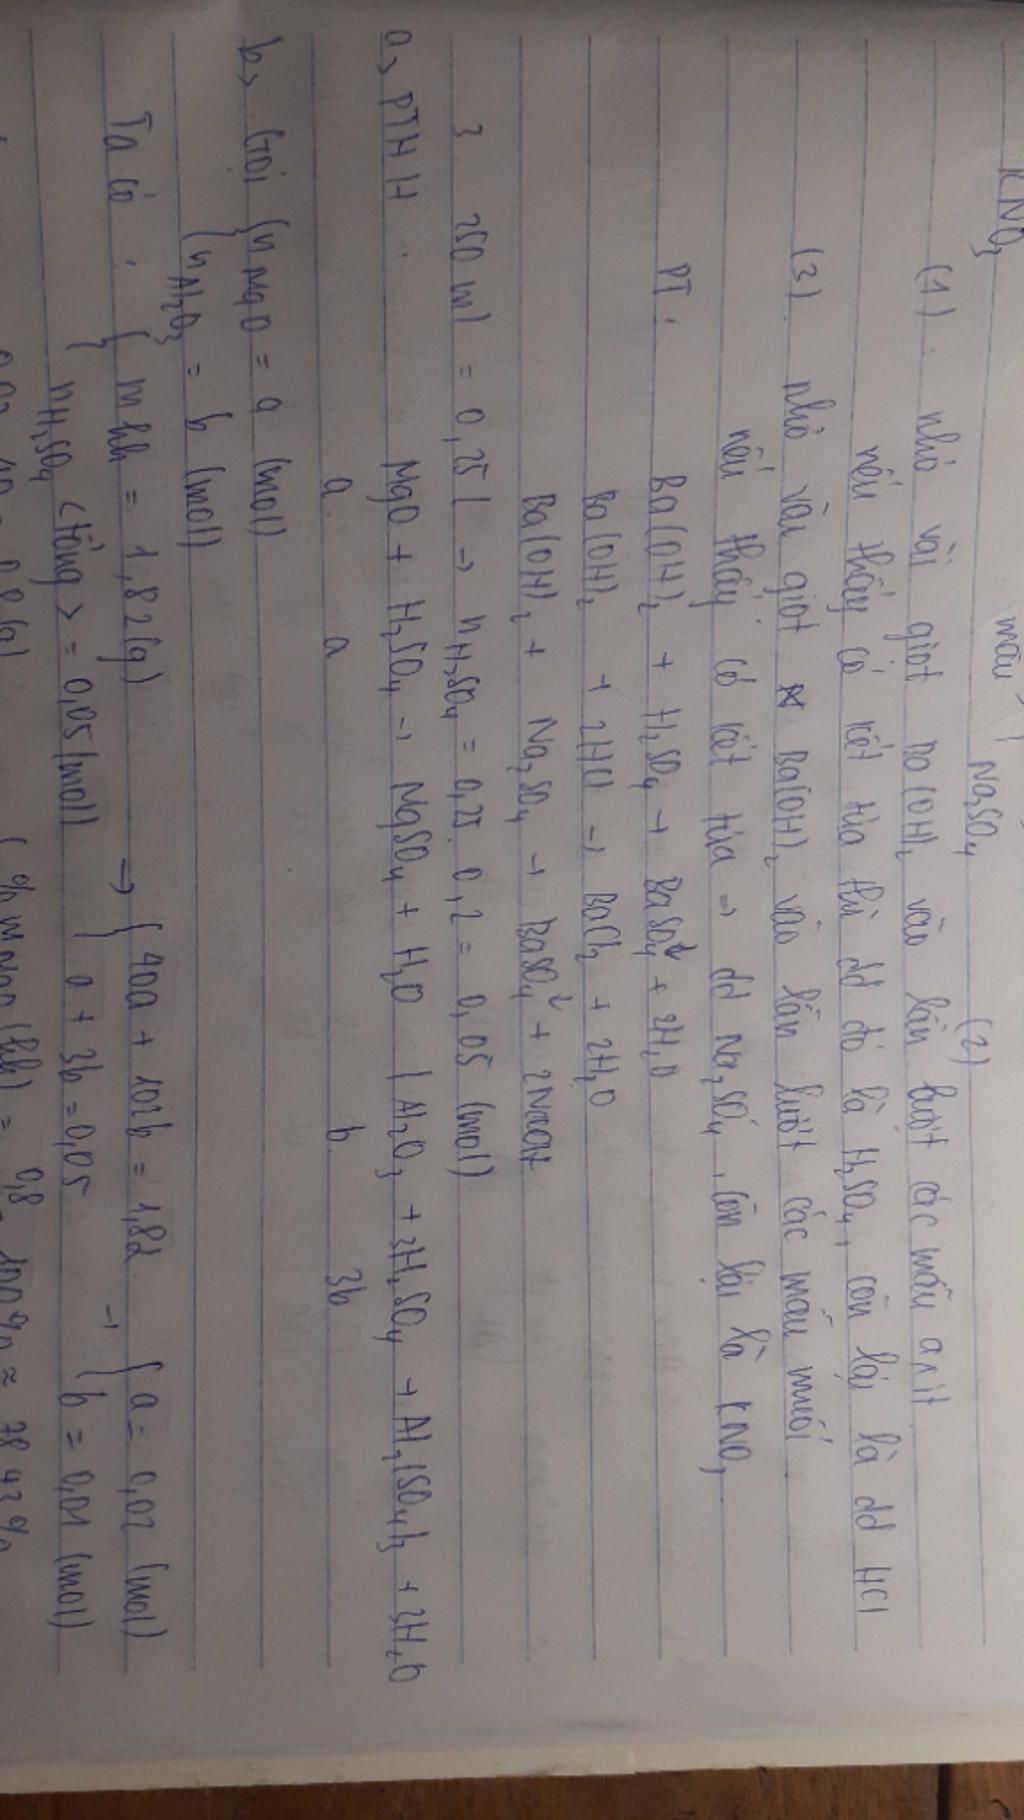 KNO3 Na2SO4
màu
(2)
(1). nhỏ vài giọt Ba(OH)2 vào lần lượt các mẫu axit
nếu thấy có kết tủa thì dd đó là H2SO4, còn lại là dd HCl
(3). nhỏ vài giọt Ba(OH)2 vào lần lượt các mẫu muối
nếu thấy có kết tủa → dd Na2SO4, còn lại là KNO3
PT: Ba(OH)2 + H2SO4 → BaSO4↓ + 2H2O
Ba(OH)2 + 2HCl → BaCl2 + 2H2O
Ba(OH)2 + Na2SO4 → BaSO4↓ + 2NaOH
3. 250 ml = 0,25 l → nH2SO4 = 0,25.0,2 = 0,05 (mol)
a> PTHH: MgO + H2SO4 → MgSO4 + H2O | Al2O3 + 3H2SO4 → Al2(SO4)3 + 3H2O
a a b 3b
b> Gọi { nMgO = a (mol)
{ nAl2O3 = b (mol)
Ta có: { mhh = 1,82(g) → { 40a + 102b = 1,82 → { a = 0,02 (mol)
{ nH2SO4 <tổng> = 0,05(mol) { a + 3b = 0,05 { b = 0,01 (mol)